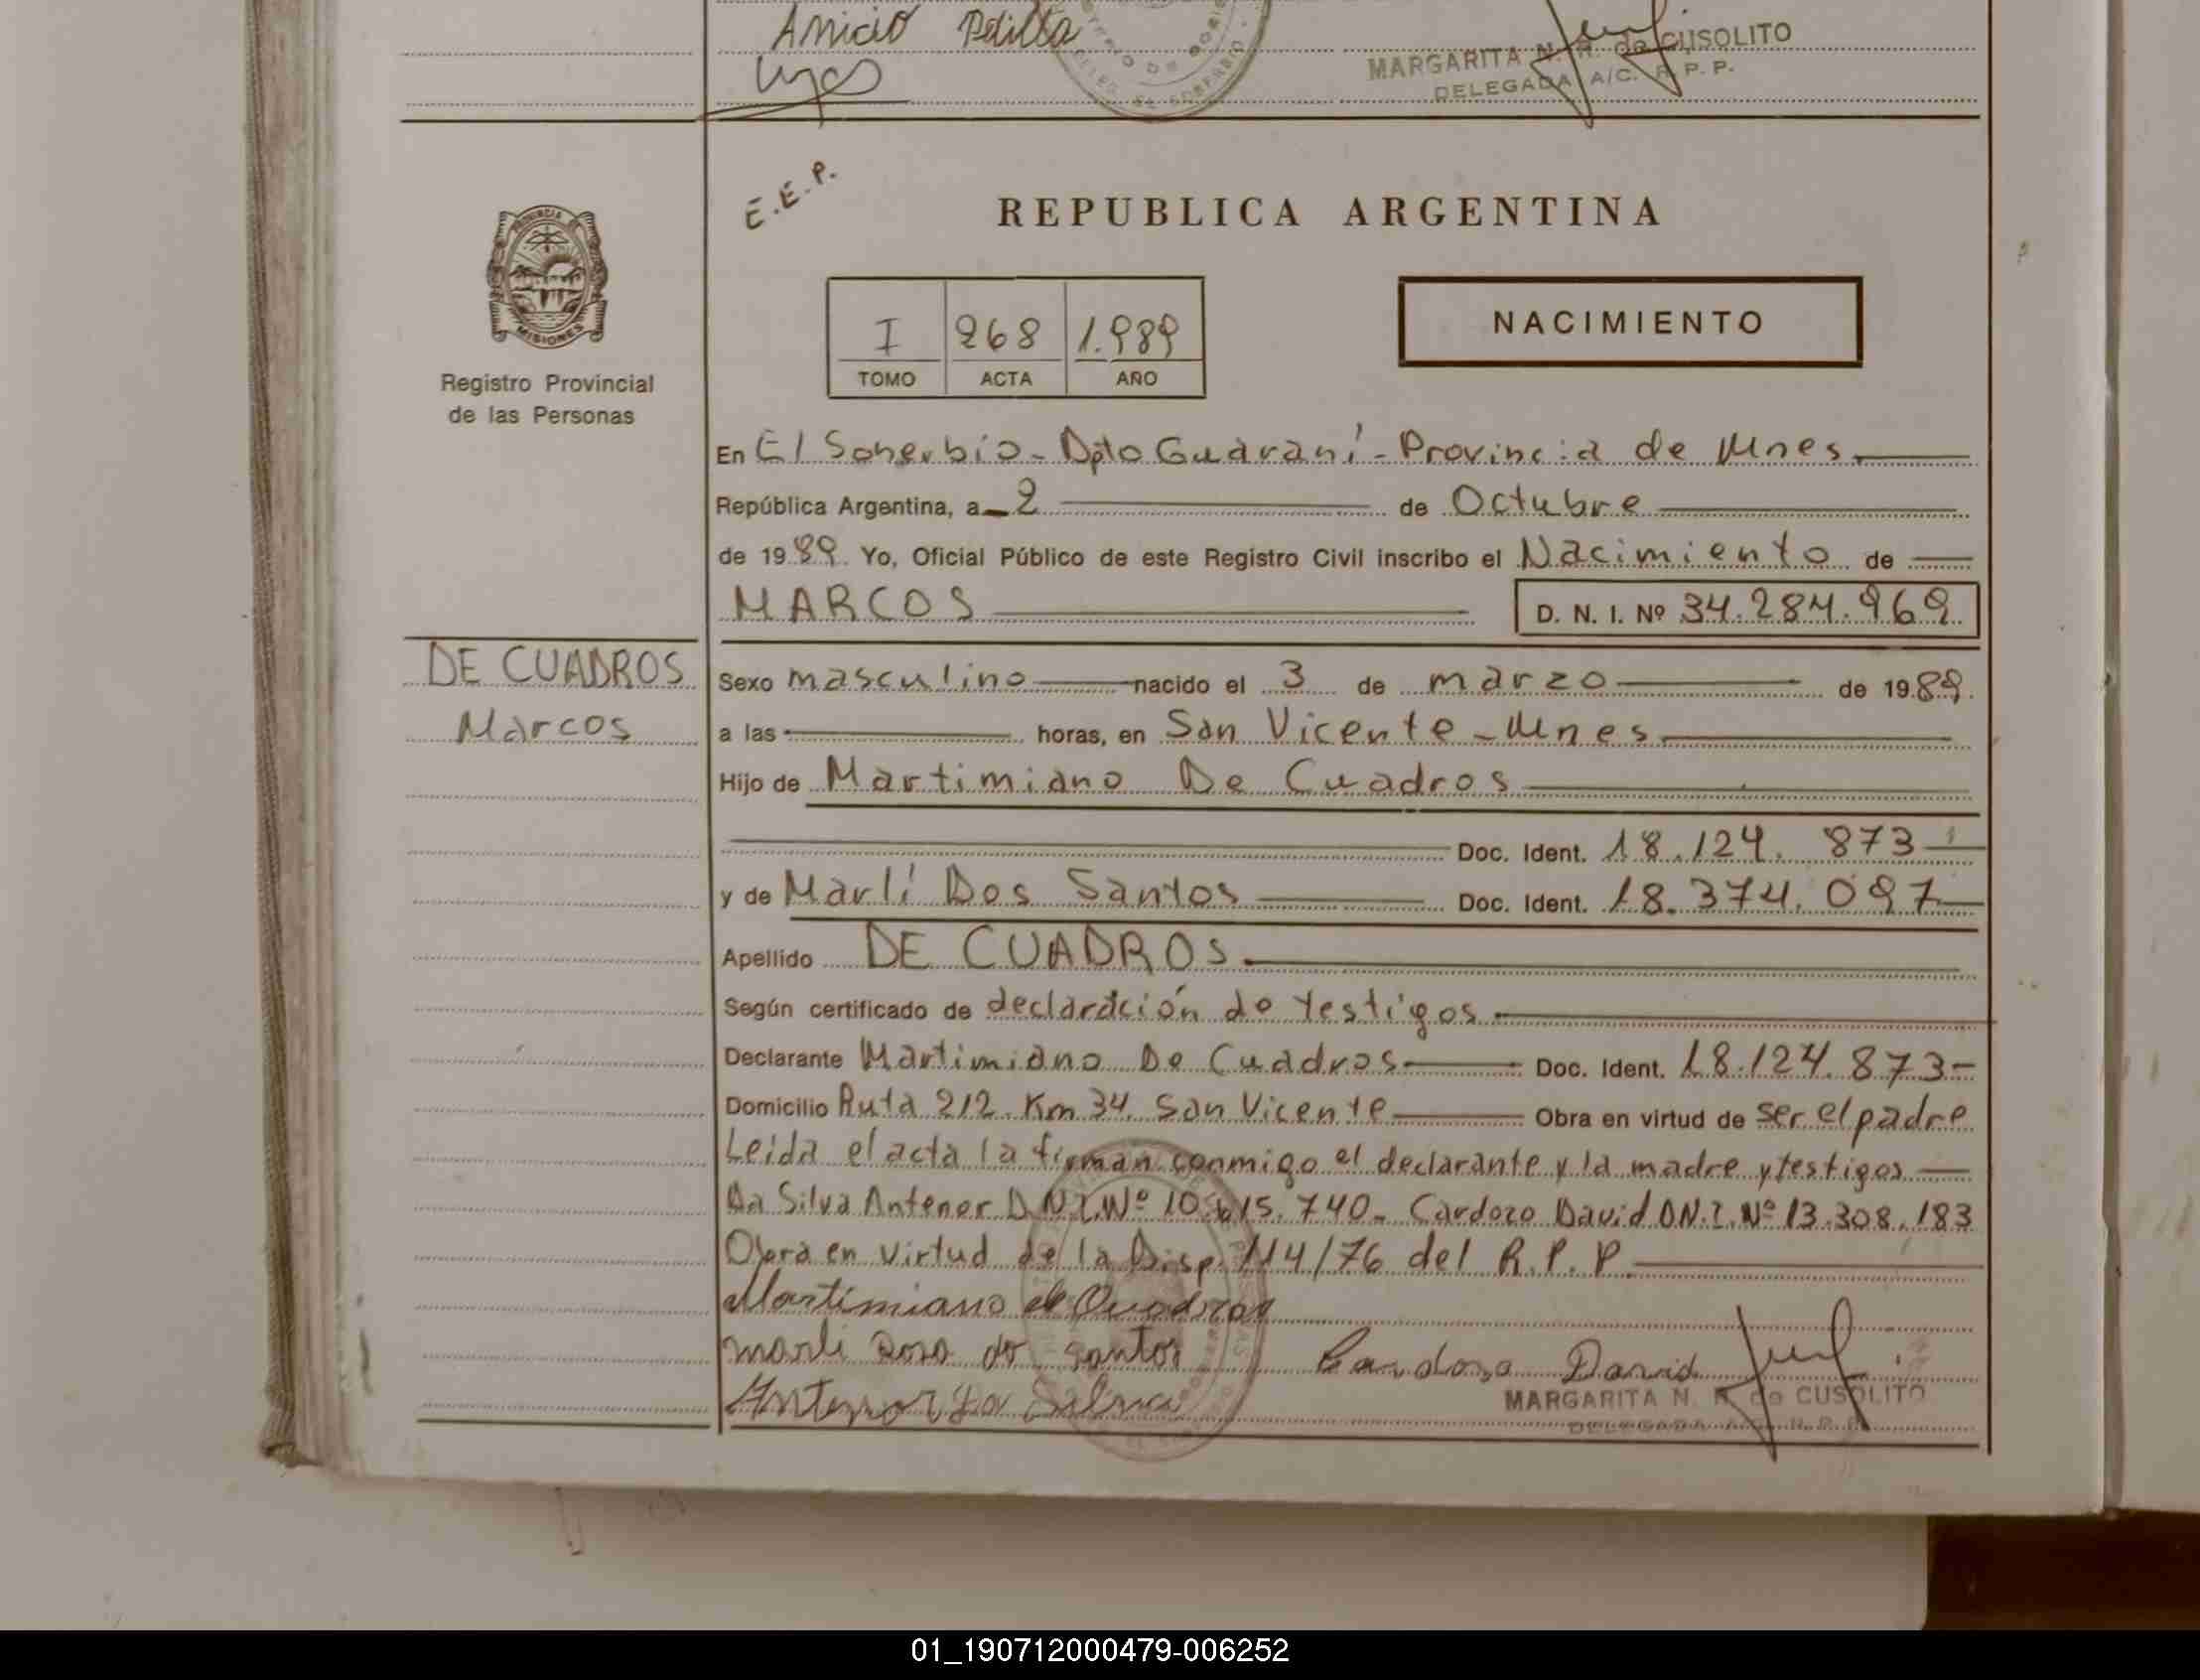 Anicio Padilla
MARGARITA N. R. de CUSOLITO
DELEGADA A/C. R. P. P.
E.E.P.
REPUBLICA ARGENTINA
PROVINCIA DE
MISIONES
I 268 1.989
TOMO ACTA AÑO
NACIMIENTO
Registro Provincial
de las Personas
En El Soberbio - Dpto Guaraní - Provincia de Mnes.
República Argentina, a 2 de Octubre
de 1989. Yo, Oficial Público de este Registro Civil inscribo el Nacimiento de
MARCOS D. N. I. Nº 34.284.969
DE CUADROS
Marcos
Sexo masculino nacido el 3 de marzo de 1989.
a las horas, en San Vicente - Mnes
Hijo de Martimiano De Cuadros
Doc. Ident. 18.124.873
y de Marlí Dos Santos Doc. Ident. 18.374.097
Apellido DE CUADROS.
Según certificado de declaración de testigos
Declarante Martimiano De Cuadros Doc. Ident. 18.124.873-
Domicilio Ruta 212 Km 34. San Vicente Obra en virtud de ser el padre
Leida el acta la firman conmigo el declarante y la madre y testigos
Da Silva Antener D.N.I. Nº 10.615.740- Cardozo David D.N.I. Nº 13.308.183
Obra en virtud de la Disp. 114/76 del R.P.P.
Martimiano de Quadros
marli Rosa do santos Cardoso David
Antenor da Silva
MARGARITA N. R. de CUSOLITO
DELEGADA
01_190712000479-006252